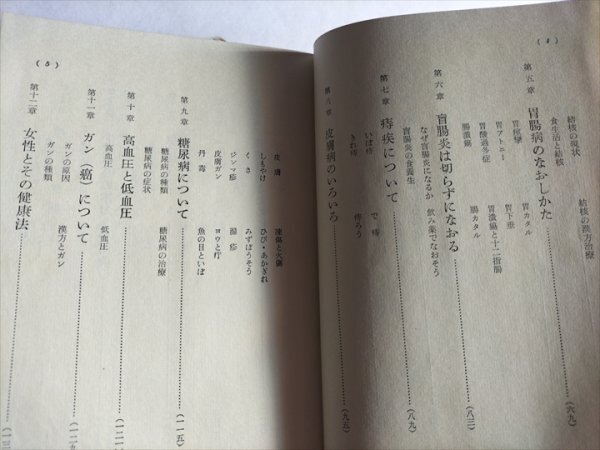 (4)
結核の現状
結核の漢方治療
食生活と結核
第五章 胃腸病のなおしかた……(六九)
胃痙攣
胃カタル
胃アトニー
胃下垂
胃酸過多症
胃潰瘍と十二指腸
腸潰瘍
腸カタル
第六章 盲腸炎は切らずになおる……(八三)
なぜ盲腸炎になるか
飲み薬でなおそう
盲腸炎の食養生
第七章 痔疾について……(八九)
いぼ痔
で痔
きれ痔
痔ろう
第八章 皮膚病のいろいろ……(九五)
(5)
皮膚
凍傷と火傷
しもやけ
ひび・あかぎれ
くさ
みずぼうそう
ジンマ疹
湿疹
皮膚ガン
ヨウと疔
丹毒
魚の目といぼ
第九章 糖尿病について……(一一五)
糖尿病の種類
糖尿病の治療
糖尿病の症状
第十章 高血圧と低血圧
高血圧
低血圧
第十一章 ガン(癌)について
ガンの種類
漢方とガン
ガンの原因
第十二章 女性とその健康法